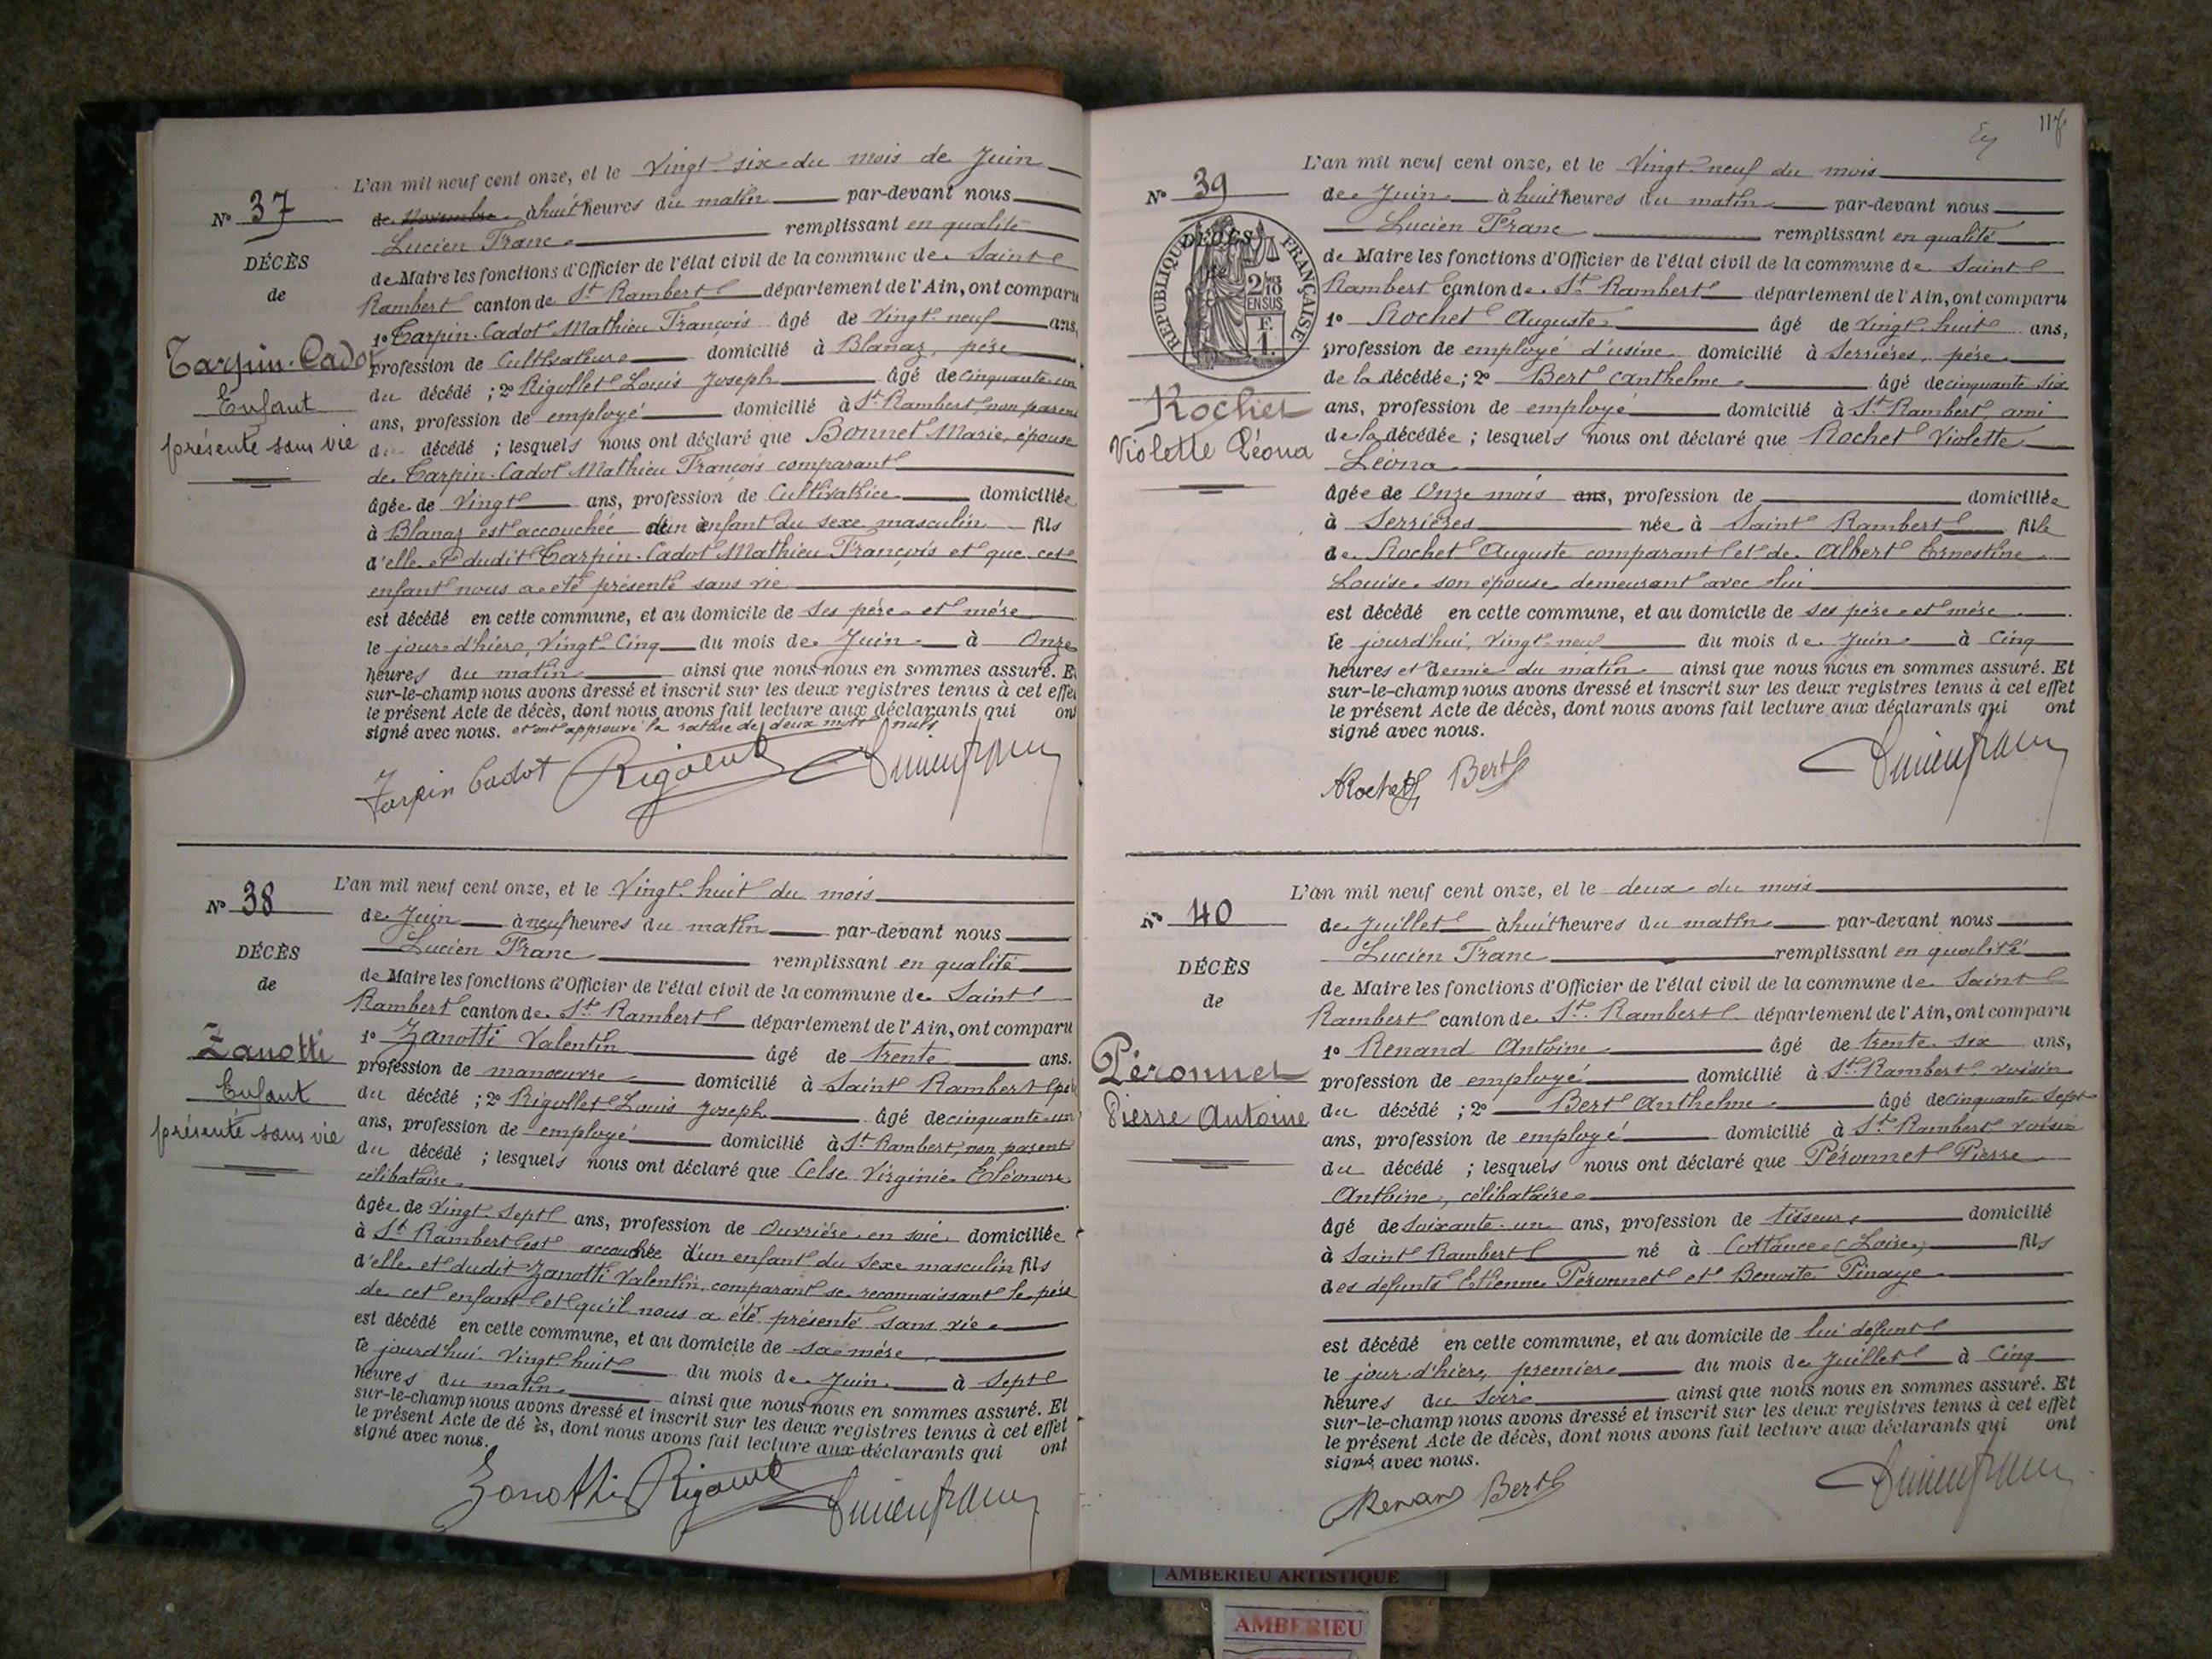 Nº 37
DÉCÈS
de
Tarpin-Cadot
Enfant
présenté sans vie
L'an mil neuf cent onze, et le Vingt six du mois de Juin
de Novembre à huit heures du matin par-devant nous
Lucien Franc remplissant en qualité
de Maire les fonctions d'Officier de l'état civil de la commune de Saint
Rambert canton de St Rambert département de l'Ain, ont comparu
1º Tarpin-Cadot Mathieu François âgé de Vingt-neuf ans,
profession de Cultivateur domicilié à Blanaz, père
du décédé ; 2º Rigollet Louis Joseph âgé de cinquante-un
ans, profession de employé domicilié à St Rambert, non parent
du décédé ; lesquels nous ont déclaré que Bonnet Marie, épouse
de Tarpin-Cadot Mathieu François comparant
âgée de Vingt ans, profession de Cultivatrice domiciliée
à Blanaz est accouchée d'un enfant du sexe masculin fils
d'elle et dudit Tarpin-Cadot Mathieu François et que cet
enfant nous a été présenté sans vie
est décédé en cette commune, et au domicile de ses père et mère
le jour d'hier, Vingt-Cinq du mois de Juin à Onze
heures du matin ainsi que nous nous en sommes assuré. Et
sur-le-champ nous avons dressé et inscrit sur les deux registres tenus à cet effet
le présent Acte de décès, dont nous avons fait lecture aux déclarants qui ont
signé avec nous. et ont approuvé la rature de deux mots nuls
Tarpin Cadot Rigollet Lucien Franc
Nº 38
DÉCÈS
de
Zanotti
Enfant
présenté sans vie
L'an mil neuf cent onze, et le Vingt-huit du mois
de Juin à neuf heures du matin par-devant nous
Lucien Franc remplissant en qualité
de Maire les fonctions d'Officier de l'état civil de la commune de Saint
Rambert canton de St Rambert département de l'Ain, ont comparu
1º Zanotti Valentin âgé de trente ans.
profession de manœuvre domicilié à Saint Rambert père
du décédé ; 2º Rigollet Louis Joseph âgé de cinquante-un
ans, profession de employé domicilié à St Rambert, non parent
du décédé ; lesquels nous ont déclaré que Celse Virginie Eléonore
célibataire
âgée de Vingt-Sept ans, profession de Ouvrière en soie domiciliée
à St Rambert est accouchée d'un enfant du sexe masculin fils
d'elle et dudit Zanotti Valentin, comparant se reconnaissant le père
de cet enfant et qu'il nous a été présenté sans vie
est décédé en cette commune, et au domicile de sa mère
le jourd'hui Vingt huit du mois de Juin à Sept
heures du matin ainsi que nous nous en sommes assuré. Et
sur-le-champ nous avons dressé et inscrit sur les deux registres tenus à cet effet
le présent Acte de dé ès, dont nous avons fait lecture aux déclarants qui ont
signé avec nous.
Zanotti Rigollet Lucien Franc
117
Nº 39
DÉCÈS
RÉPUBLIQUE FRANÇAISE
2/10
EN SUS
F.
1.
Rochet
Violette Léona
L'an mil neuf cent onze, et le Vingt-neuf du mois
de Juin à huit heures du matin par-devant nous
Lucien Franc remplissant en qualité
de Maire les fonctions d'Officier de l'état civil de la commune de Saint
Rambert canton de St Rambert département de l'Ain, ont comparu
1º Rochet Auguste âgé de Vingt-huit ans,
profession de employé d'usine domicilié à Serrières, père
de la décédée ; 2º Bert Anthelme âgé de cinquante six
ans, profession de employé domicilié à St Rambert, ami
de la décédée ; lesquels nous ont déclaré que Rochet Violette
Léona
âgée de Onze mois ans, profession de domiciliée
à Serrières née à Saint Rambert fille
de Rochet Auguste comparant et de Albert Ernestine
Louise son épouse demeurant avec lui
est décédé en cette commune, et au domicile de ses père et mère
le jourd'hui, Vingt-neuf du mois de Juin à Cinq
heures et demie du matin ainsi que nous nous en sommes assuré. Et
sur-le-champ nous avons dressé et inscrit sur les deux registres tenus à cet effet
le présent Acte de décès, dont nous avons fait lecture aux déclarants qui ont
signé avec nous.
ARochet Bert Lucien Franc
Nº 40
DÉCÈS
de
Péronnet
Pierre Antoine
L'an mil neuf cent onze, et le deux du mois
de Juillet à huit heures du matin par-devant nous
Lucien Franc remplissant en qualité
de Maire les fonctions d'Officier de l'état civil de la commune de Saint
Rambert canton de St Rambert département de l'Ain, ont comparu
1º Renand Antoine âgé de trente-six ans,
profession de employé domicilié à St Rambert, voisin
du décédé ; 2º Bert Anthelme âgé de cinquante-sept
ans, profession de employé domicilié à St Rambert voisin
du décédé ; lesquels nous ont déclaré que Péronnet Pierre
Antoine, célibataire
âgé de Soixante-un ans, profession de tisseur domicilié
à Saint Rambert né à Cottance (Loire) fils
des défunts Etienne Péronnet et Benoite Pinaye
est décédé en cette commune, et au domicile de lui défunt
le jour d'hier, premier du mois de Juillet à Cinq
heures du Soir ainsi que nous nous en sommes assuré. Et
sur-le-champ nous avons dressé et inscrit sur les deux registres tenus à cet effet
le présent Acte de décès, dont nous avons fait lecture aux déclarants qui ont
signé avec nous.
Renand Bert Lucien Franc
AMBERIEU ARTISTIQUE
AMBERIEU